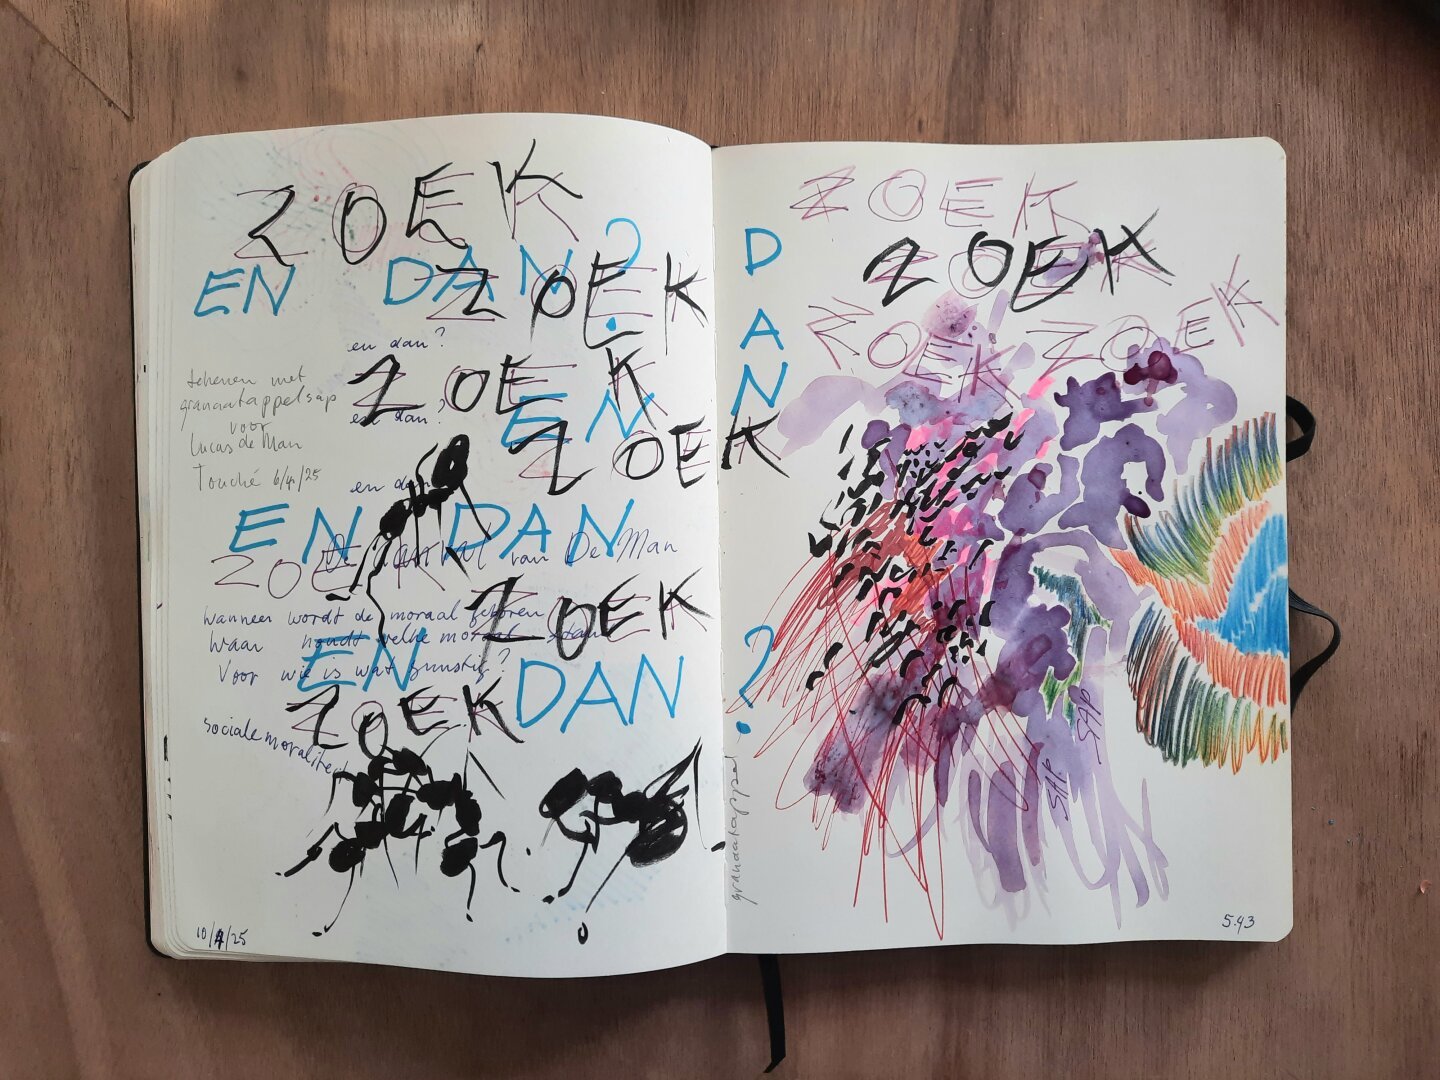 ZOEK
EN DAN?
ZOEK
en dan?
ZOEK
tekenen met
granaatappelsap
voor
Lucas de Man
Touché 6/4/25
en dan?
EN
ZOEK
en dan
EN DAN
De moraal van De Man
ZOEK
ZOEK
wanneer wordt de moraal geboren
Waar houdt welke moraal stand
Voor wie is wat gunstig?
EN DAN
ZOEK
sociale moraliteit
10/4/25
ZOEK
DAN
?
ZOEK
ZOEK
ZOEK
SAP
SAP
granaatappel
5.43